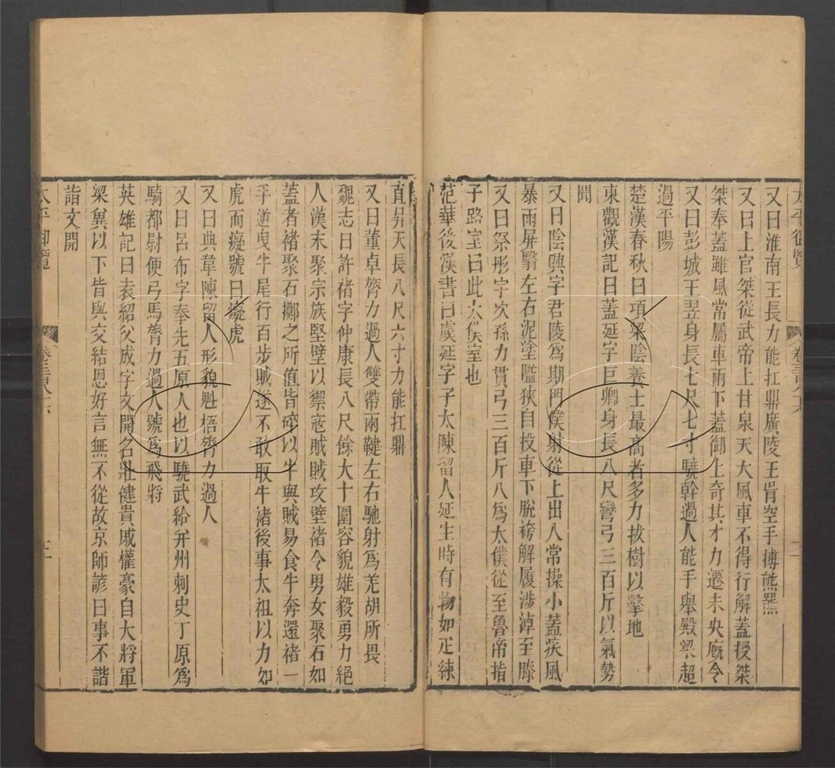 太平御覽 卷三百八十六 二
又曰淮南王長力能扛鼎廣陵王胥空手搏熊羆
又曰上官桀從武帝上甘泉天大風車不得行解蓋授桀
桀奉蓋雖風常屬車雨下蓋御上奇其才力遷未央廐令
又曰彭城王翌身長七尺七寸驍幹過人能手舉殿梁超
過平陽
楚漢春秋曰項梁陰養士最高者多力拔樹以擊地
東觀漢記曰蓋延字巨卿身長八尺彎弓三百斤以氣勢
聞
又曰陰興字君陵爲期門僕射從上出入常操小蓋疾風
暴雨屏翳左右泥塗隘狹自投車下脫袴解履涉淖至膝
又曰祭肜字次孫力貫弓三百斤八爲太僕從至魯帝指
子路室曰此太僕室也
范華後漢書曰虞延字子太陳留人延生時有物如疋練
直昇天長八尺六寸力能扛鼎
又曰董卓膂力過人雙帶兩鞬左右馳射爲羌胡所畏
魏志曰許褚字仲康長八尺餘大十圍容貌雄毅勇力絕
人漢末聚宗族堅壁以禦寇賊賊攻壁褚令男女聚石如
盖者褚聚石擲之所值皆碎以牛與賊易食牛奔還褚一
手逆曳牛尾行百步賊遂不敢取牛褚後事太祖以力如
虎而癡號曰癡虎
又曰典韋陳留人形貌魁梧膂力過人
又曰呂布字奉先五原人也以驍武給并州刺史丁原爲
騎都尉便弓馬膂力過人號爲飛將
英雄記曰袁紹父成字文開名壯健貴戚權豪自大將軍
梁冀以下皆與交結恩好言無不從故京師諺曰事不諧
詣文開
太平御覽 卷三百八十六 三